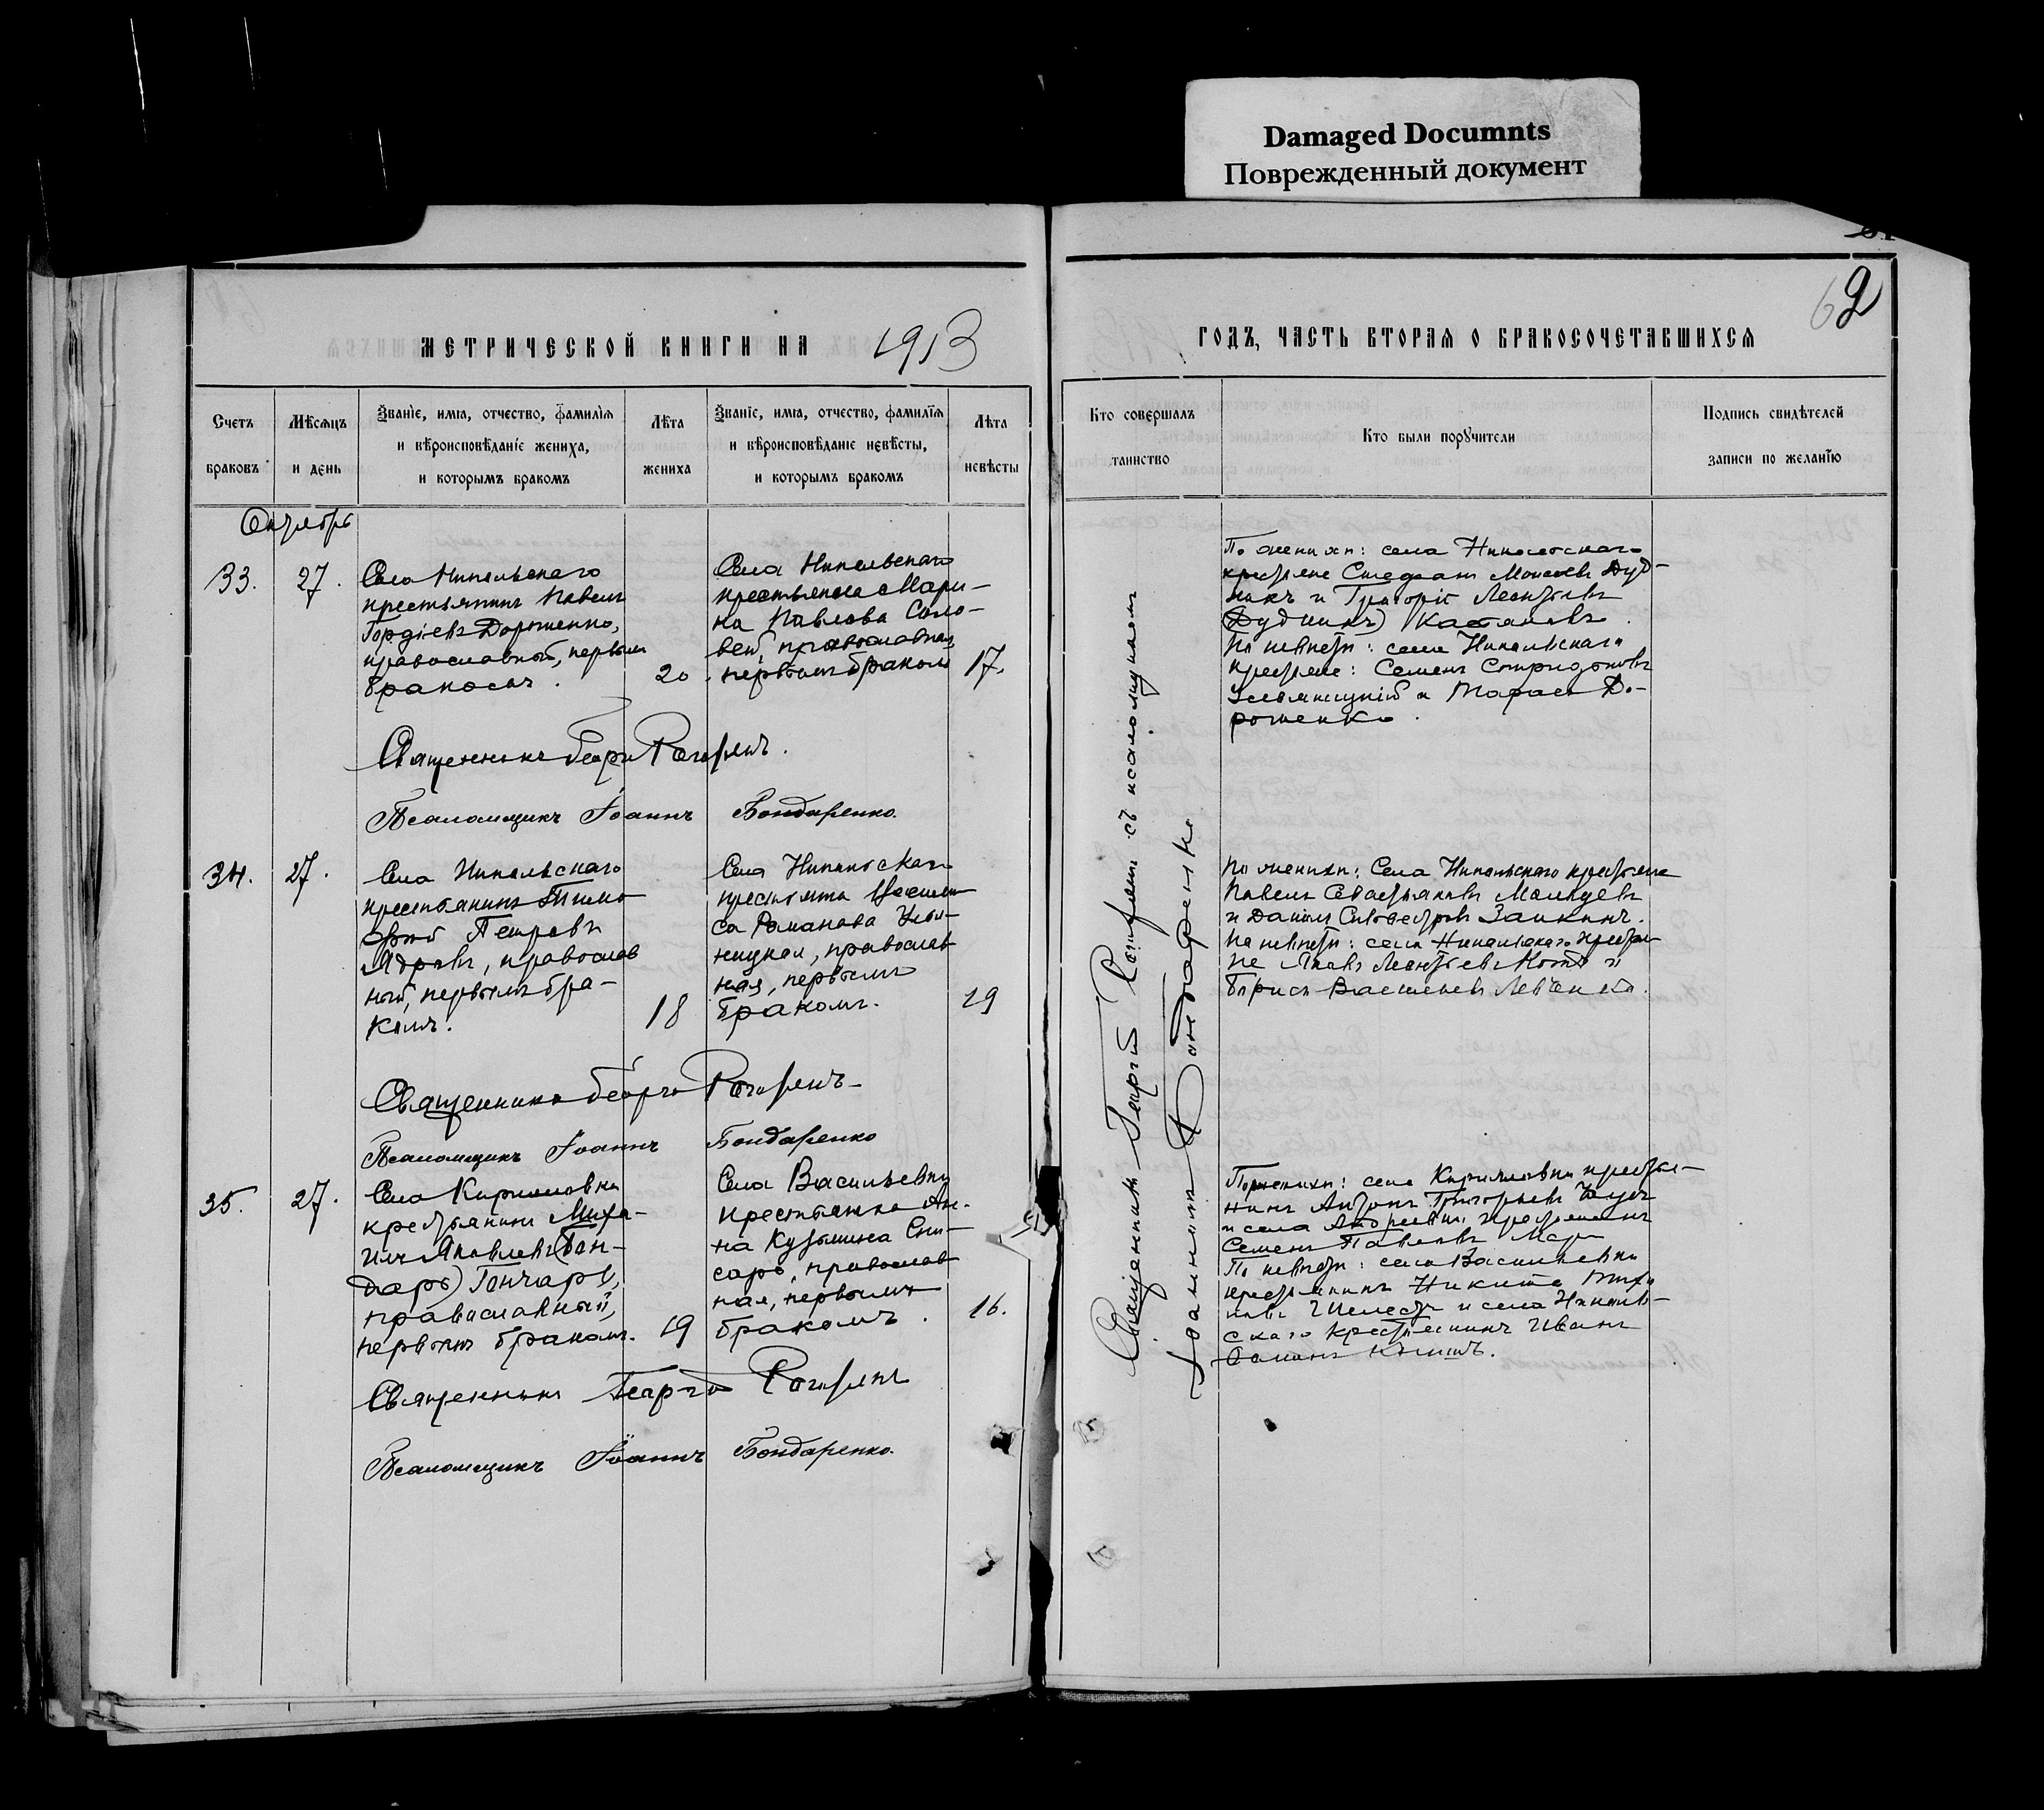 Damaged Documnts
Поврежденный документ
62
МЕТРИЧЕСКОЙ КНИГИ НА 1913
ГОДЪ, ЧАСТЬ ВТОРАЯ О БРАКОСОЧЕТАВШИХСЯ
Счетъ браковъ
Мѣсяцъ и день
Званіе, имя, отчество, фамилія
и вѣроисповѣданіе жениха,
и которымъ бракомъ
Лѣта жениха
Званіе, имя, отчество, фамилія
и вѣроисповѣданіе невѣсты,
и которымъ бракомъ
Лѣта невѣсты
Кто совершалъ таинство
Кто были поручители
Подпись свидѣтелей
записи по желанію
Октябрь
33.
27.
Села Никольскаго
крестьянинъ Павелъ
Гордіевъ Дорошенко,
православный, первымъ
бракомъ.
20.
Села Никольскаго
крестьянка Мари-
на Павлова Соло-
вей, православная,
первымъ бракомъ
17.
Священникъ Георгій
Псаломщикъ Іоаннъ Бондаренко.
34.
27.
Села Никольскаго
крестьянинъ Тимо-
фей Петровъ
Ядровъ, православ
ный, первымъ бра-
комъ.
18
Села Никольскаго
крестьянка
Романова
православ
ная, первымъ
бракомъ.
19
Священникъ Георгій
Псаломщикъ Іоаннъ Бондаренко
35.
27.
Села Кирилловки
крестьянинъ Миха-
илъ Яковлевъ (Бон-
дарь) Гончаръ,
православный,
первымъ бракомъ.
19
Села Васильевки
крестьянка Ан-
на Кузьмина Сли-
сарь, православ
ная, первымъ
бракомъ.
16.
Священникъ Георгій
Псаломщикъ Іоаннъ Бондаренко.
Священникъ Георгій съ псаломщикомъ
Іоанномъ Бондаренко
По женихѣ: села Никольскаго
крестьяне Стефанъ Моисеевъ Дуд-
никъ и Григорій Леонтьевъ
(Дудникъ)
По невѣстѣ: села Никольскаго
крестьяне: Семенъ Спиридоновъ
и Тарасъ До-
рошенко.
По женихѣ: Села Никольскаго крестьяне
Павелъ Севастьяновъ
и Даніилъ Силвестровъ Заикинъ.
По невѣстѣ: села Никольскаго крестья-
не Яковъ Леонтьевъ и
Борисъ Васильевъ
По женихѣ: села Кирилловки крестья-
нинъ Антонъ Григорьевъ
и села Андреевки крестьянинъ
Семенъ Павловъ
По невѣстѣ: села Васильевки
крестьянинъ Никита
Шелестъ и села Николь-
скаго крестьянинъ Иванъ